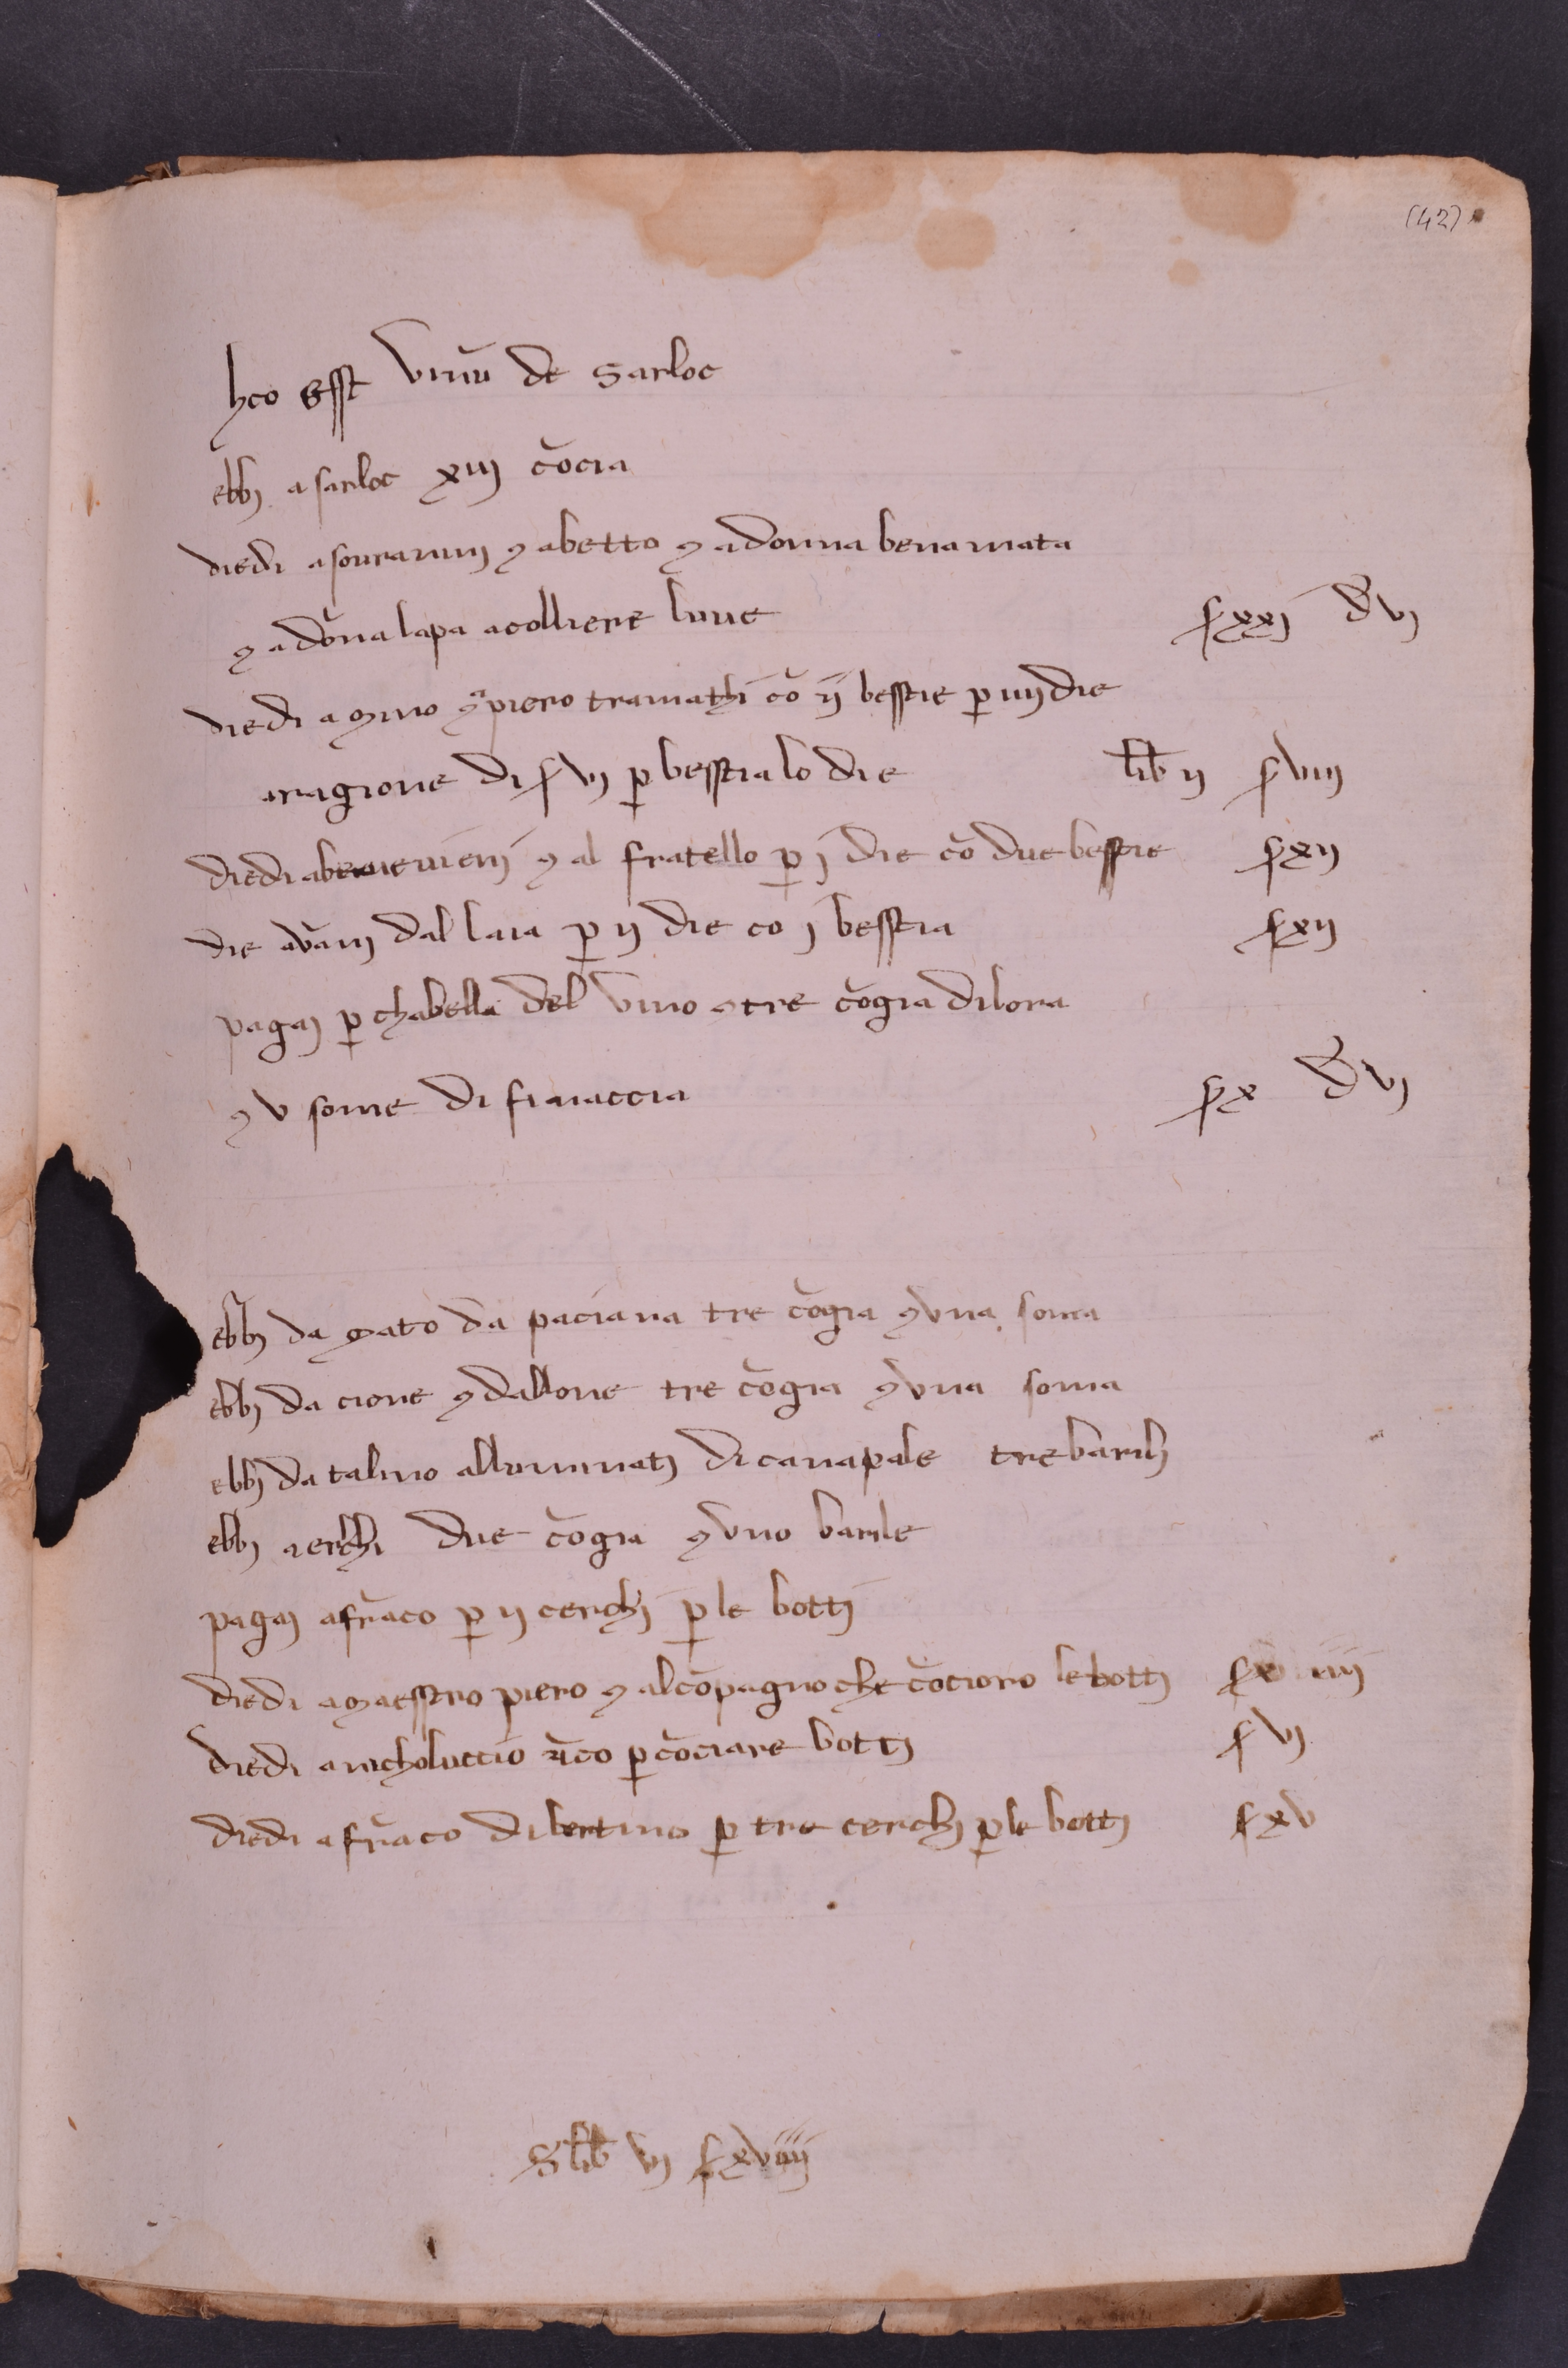 (42)
hco Esst vinū de Sarloc
ebbi a sarloc xiii cōcia
diedi a soura nuni & a betto & a donna benamata
& a dōna lapa a colliere luve s xxi d vi
diedi a mino & piero tramathi cō ii besstie p iiii die
a ragione di s vi p besstia lo die lib ii s viii
diedi a benevieni & al fratello p i die cō due besstie s xii
die a vāni dal laia p ii die co i besstia s xii
pagai p chabella del vino & tre cōgia dilora
& v some di finaccia s x d vi
ebbi da mato da paciana tre cōgia & una soma
ebbi da cione & dallone tre cōgia & una soma
ebbi da talino alluminati di canapale tre barili
ebbi a erchi due cōgia & uno barile
pagai a frāco p ii cerchi p le botti
diedi a maesstro piero & al cōpagno che cōcioro le botti
diedi a nicholuccio p cōciare botti s vi
diedi a frāco di bertino p tre cerchi p le botti s xv
S lib vi s xviiii